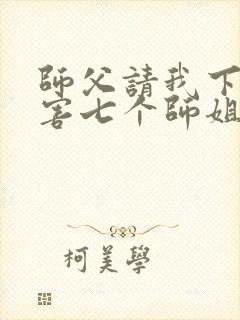 師父請我下
害七个師姐
柯美學